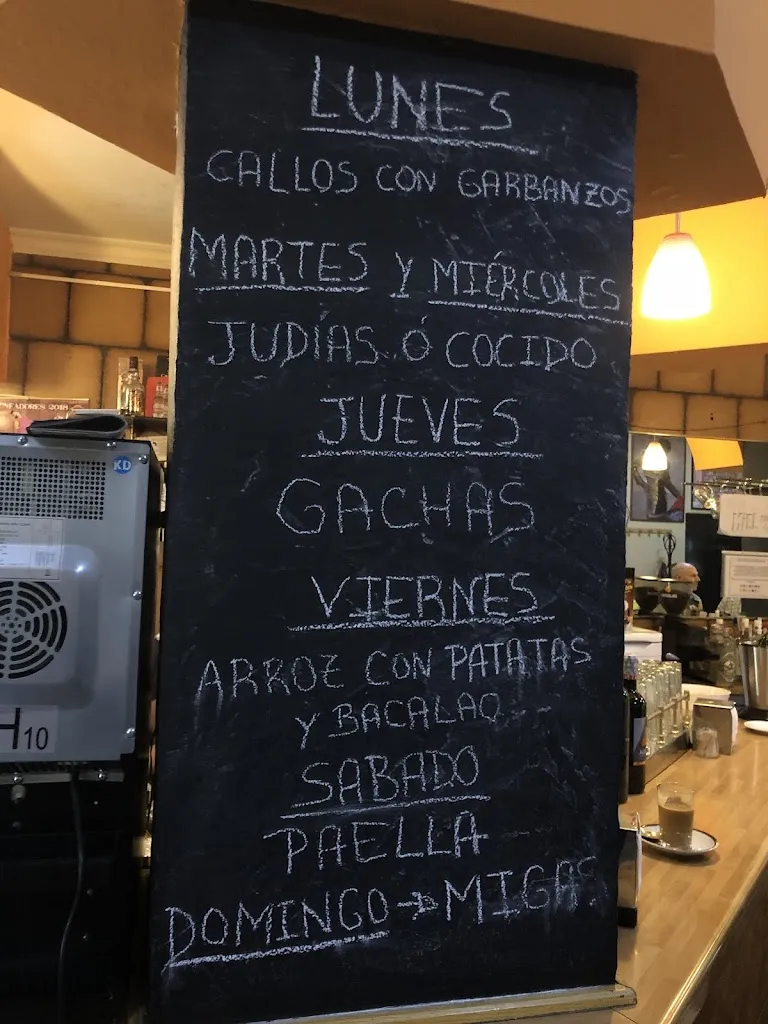 LUNES
CALLOS CON GARBANZOS
MARTES Y MIÉRCOLES
JUDÍAS Ó COCIDO
JUEVES
GACHAS
VIERNES
ARROZ CON PATATAS
Y BACALAO
SABADO
PAELLA
DOMINGO → MIGAS
KD
H10